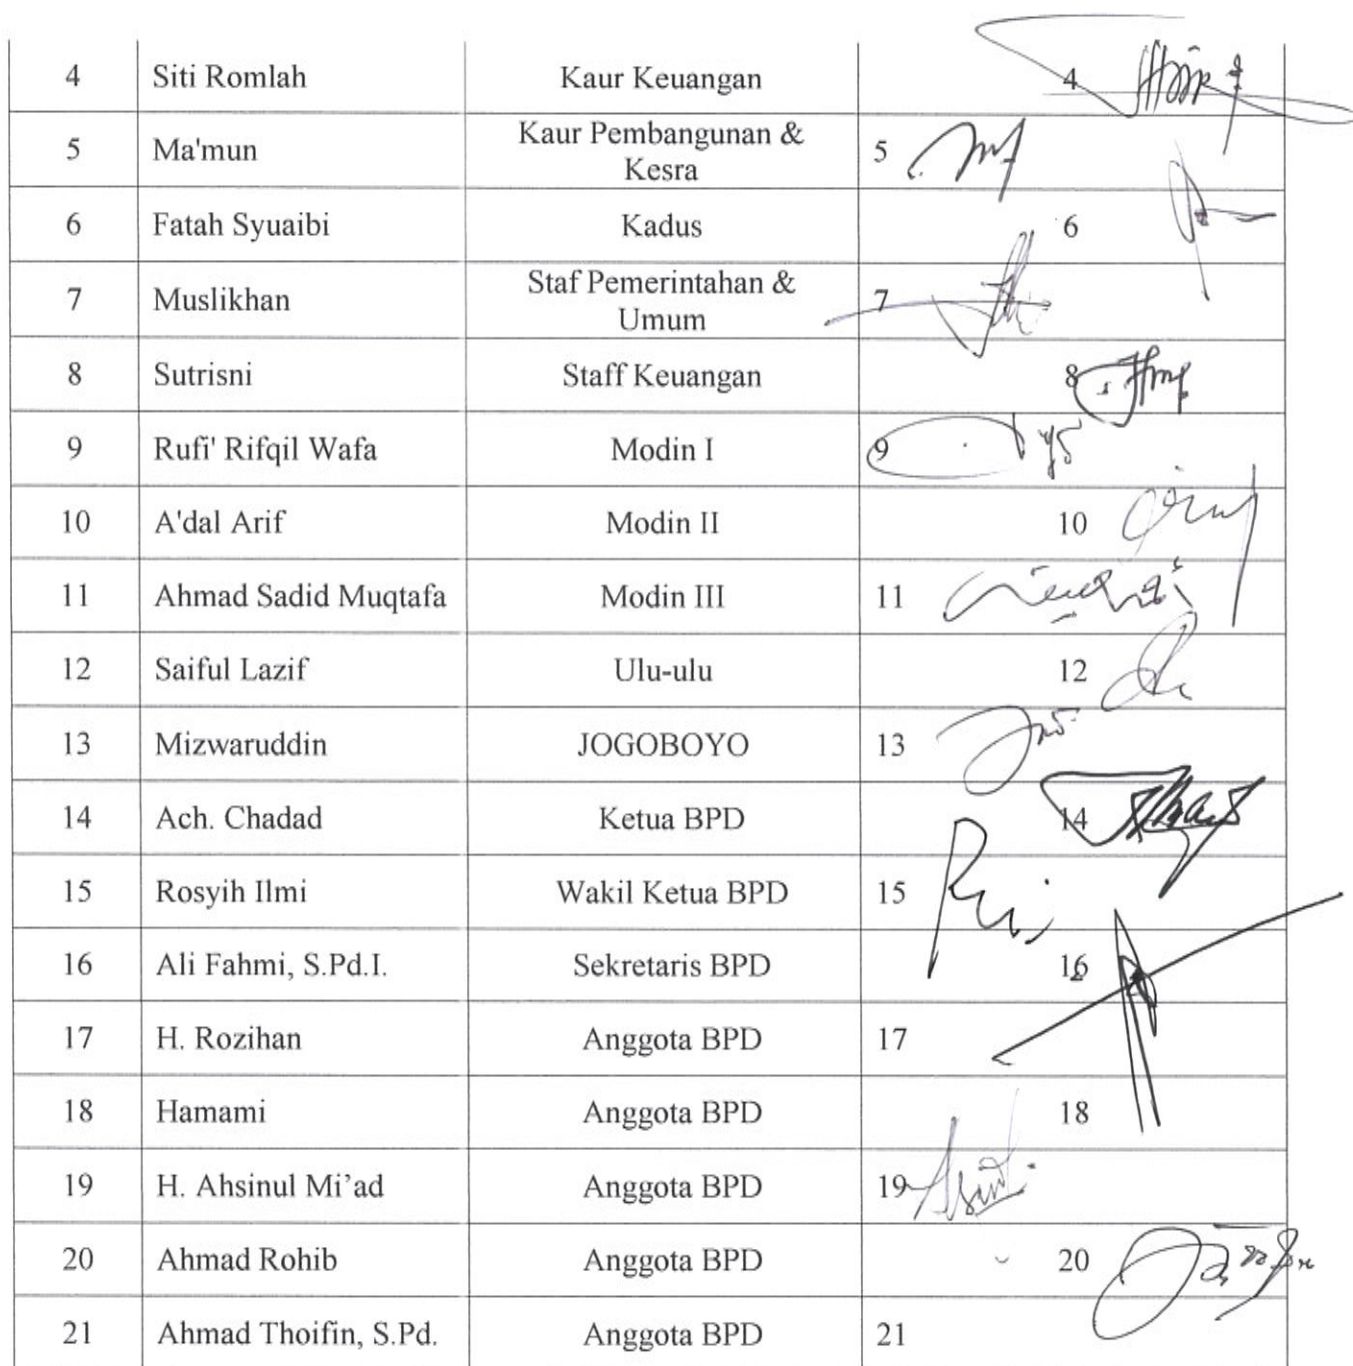 4 Siti Romlah Kaur Keuangan 4
5 Ma'mun Kaur Pembangunan & 5
Kesra
6 Fatah Syuaibi Kadus 6
7 Muslikhan Staf Pemerintahan & 7
Umum
8 Sutrisni Staff Keuangan 8
9 Rufi' Rifqil Wafa Modin I 9
10 A'dal Arif Modin II 10
11 Ahmad Sadid Muqtafa Modin III 11
12 Saiful Lazif Ulu-ulu 12
13 Mizwaruddin JOGOBOYO 13
14 Ach. Chadad Ketua BPD 14
15 Rosyih Ilmi Wakil Ketua BPD 15
16 Ali Fahmi, S.Pd.I. Sekretaris BPD 16
17 H. Rozihan Anggota BPD 17
18 Hamami Anggota BPD 18
19 H. Ahsinul Mi’ad Anggota BPD 19
20 Ahmad Rohib Anggota BPD 20
21 Ahmad Thoifin, S.Pd. Anggota BPD 21